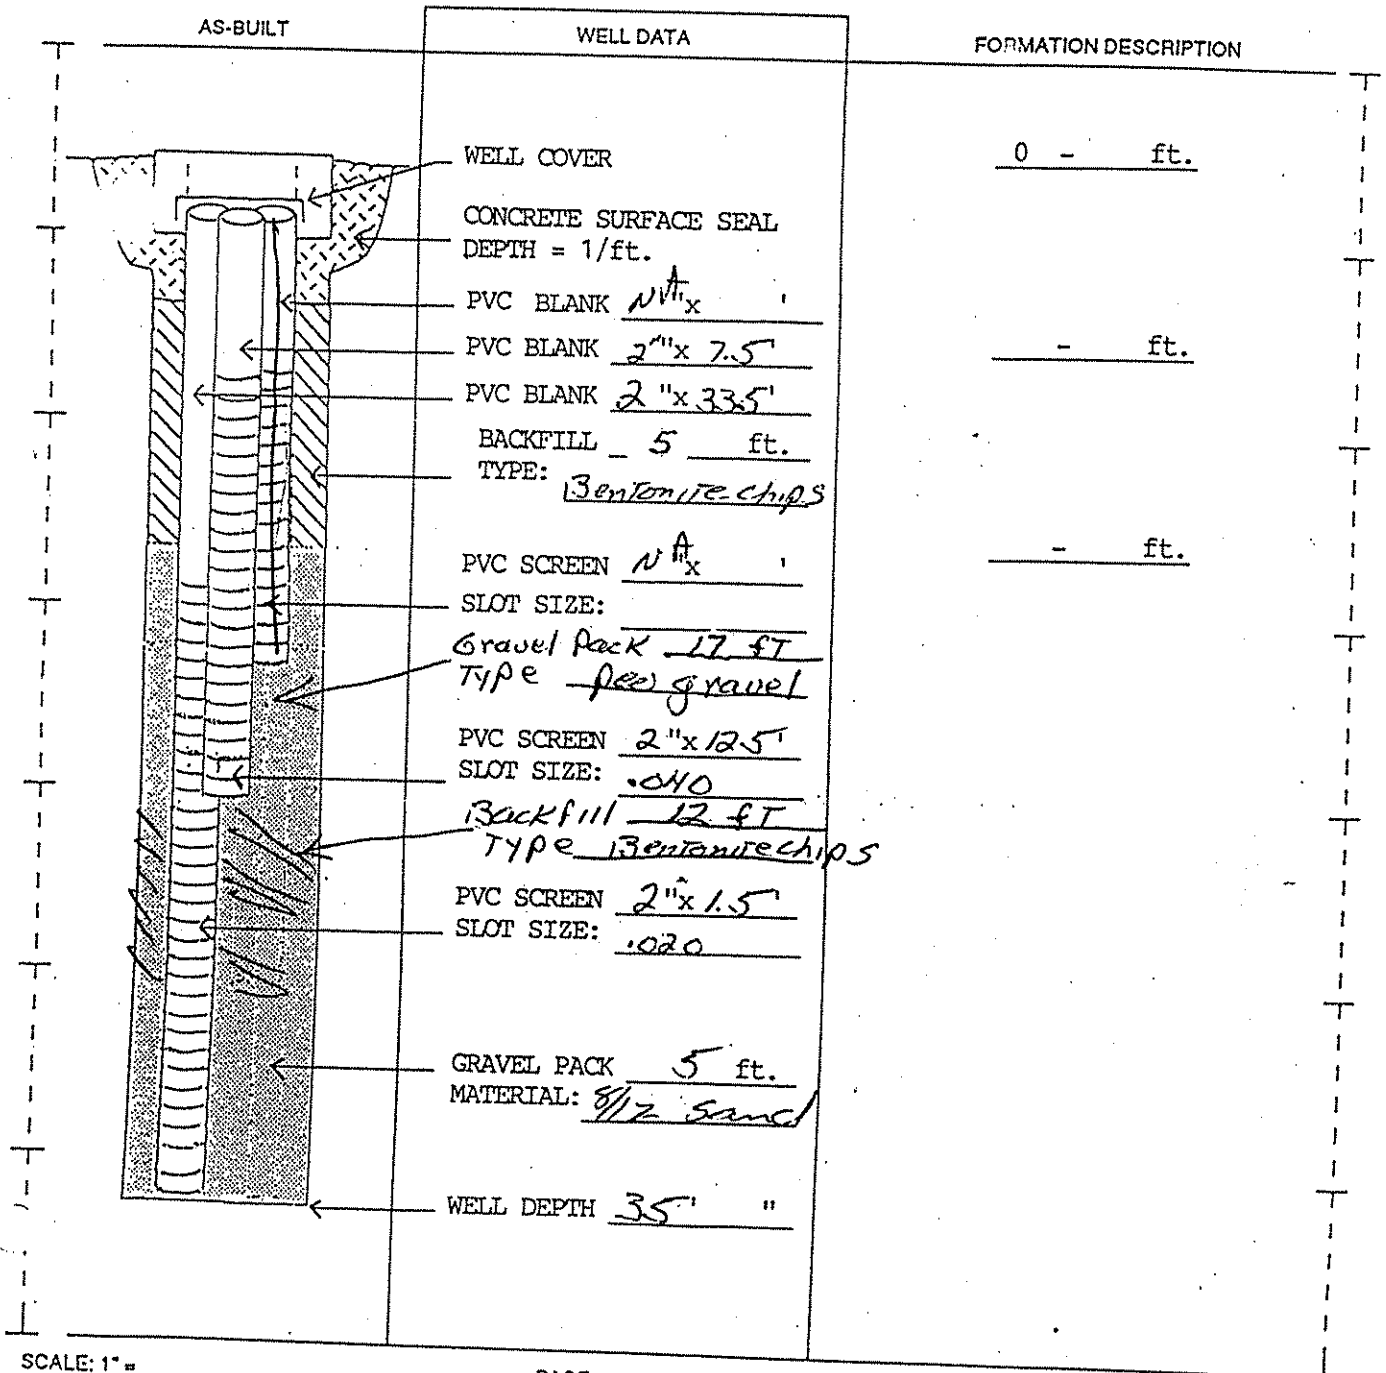 AS-BUILT
WELL DATA
FORMATION DESCRIPTION
WELL COVER
0 - ft.
CONCRETE SURFACE SEAL
DEPTH = 1/ft.
PVC BLANK NA "x '
PVC BLANK 2 "x 7.5'
- ft.
PVC BLANK 2 "x 33.5'
BACKFILL 5 ft.
TYPE: Bentonite chips
PVC SCREEN NA "x '
- ft.
SLOT SIZE:
Gravel Pack 17 fT
Type pea gravel
PVC SCREEN 2 "x 12.5'
SLOT SIZE: .040
Backfill 12 fT
Type Bentonite chips
PVC SCREEN 2 "x 1.5'
SLOT SIZE: .020
GRAVEL PACK 5 ft.
MATERIAL: 8/12 Sand
WELL DEPTH 35' "
SCALE: 1" =